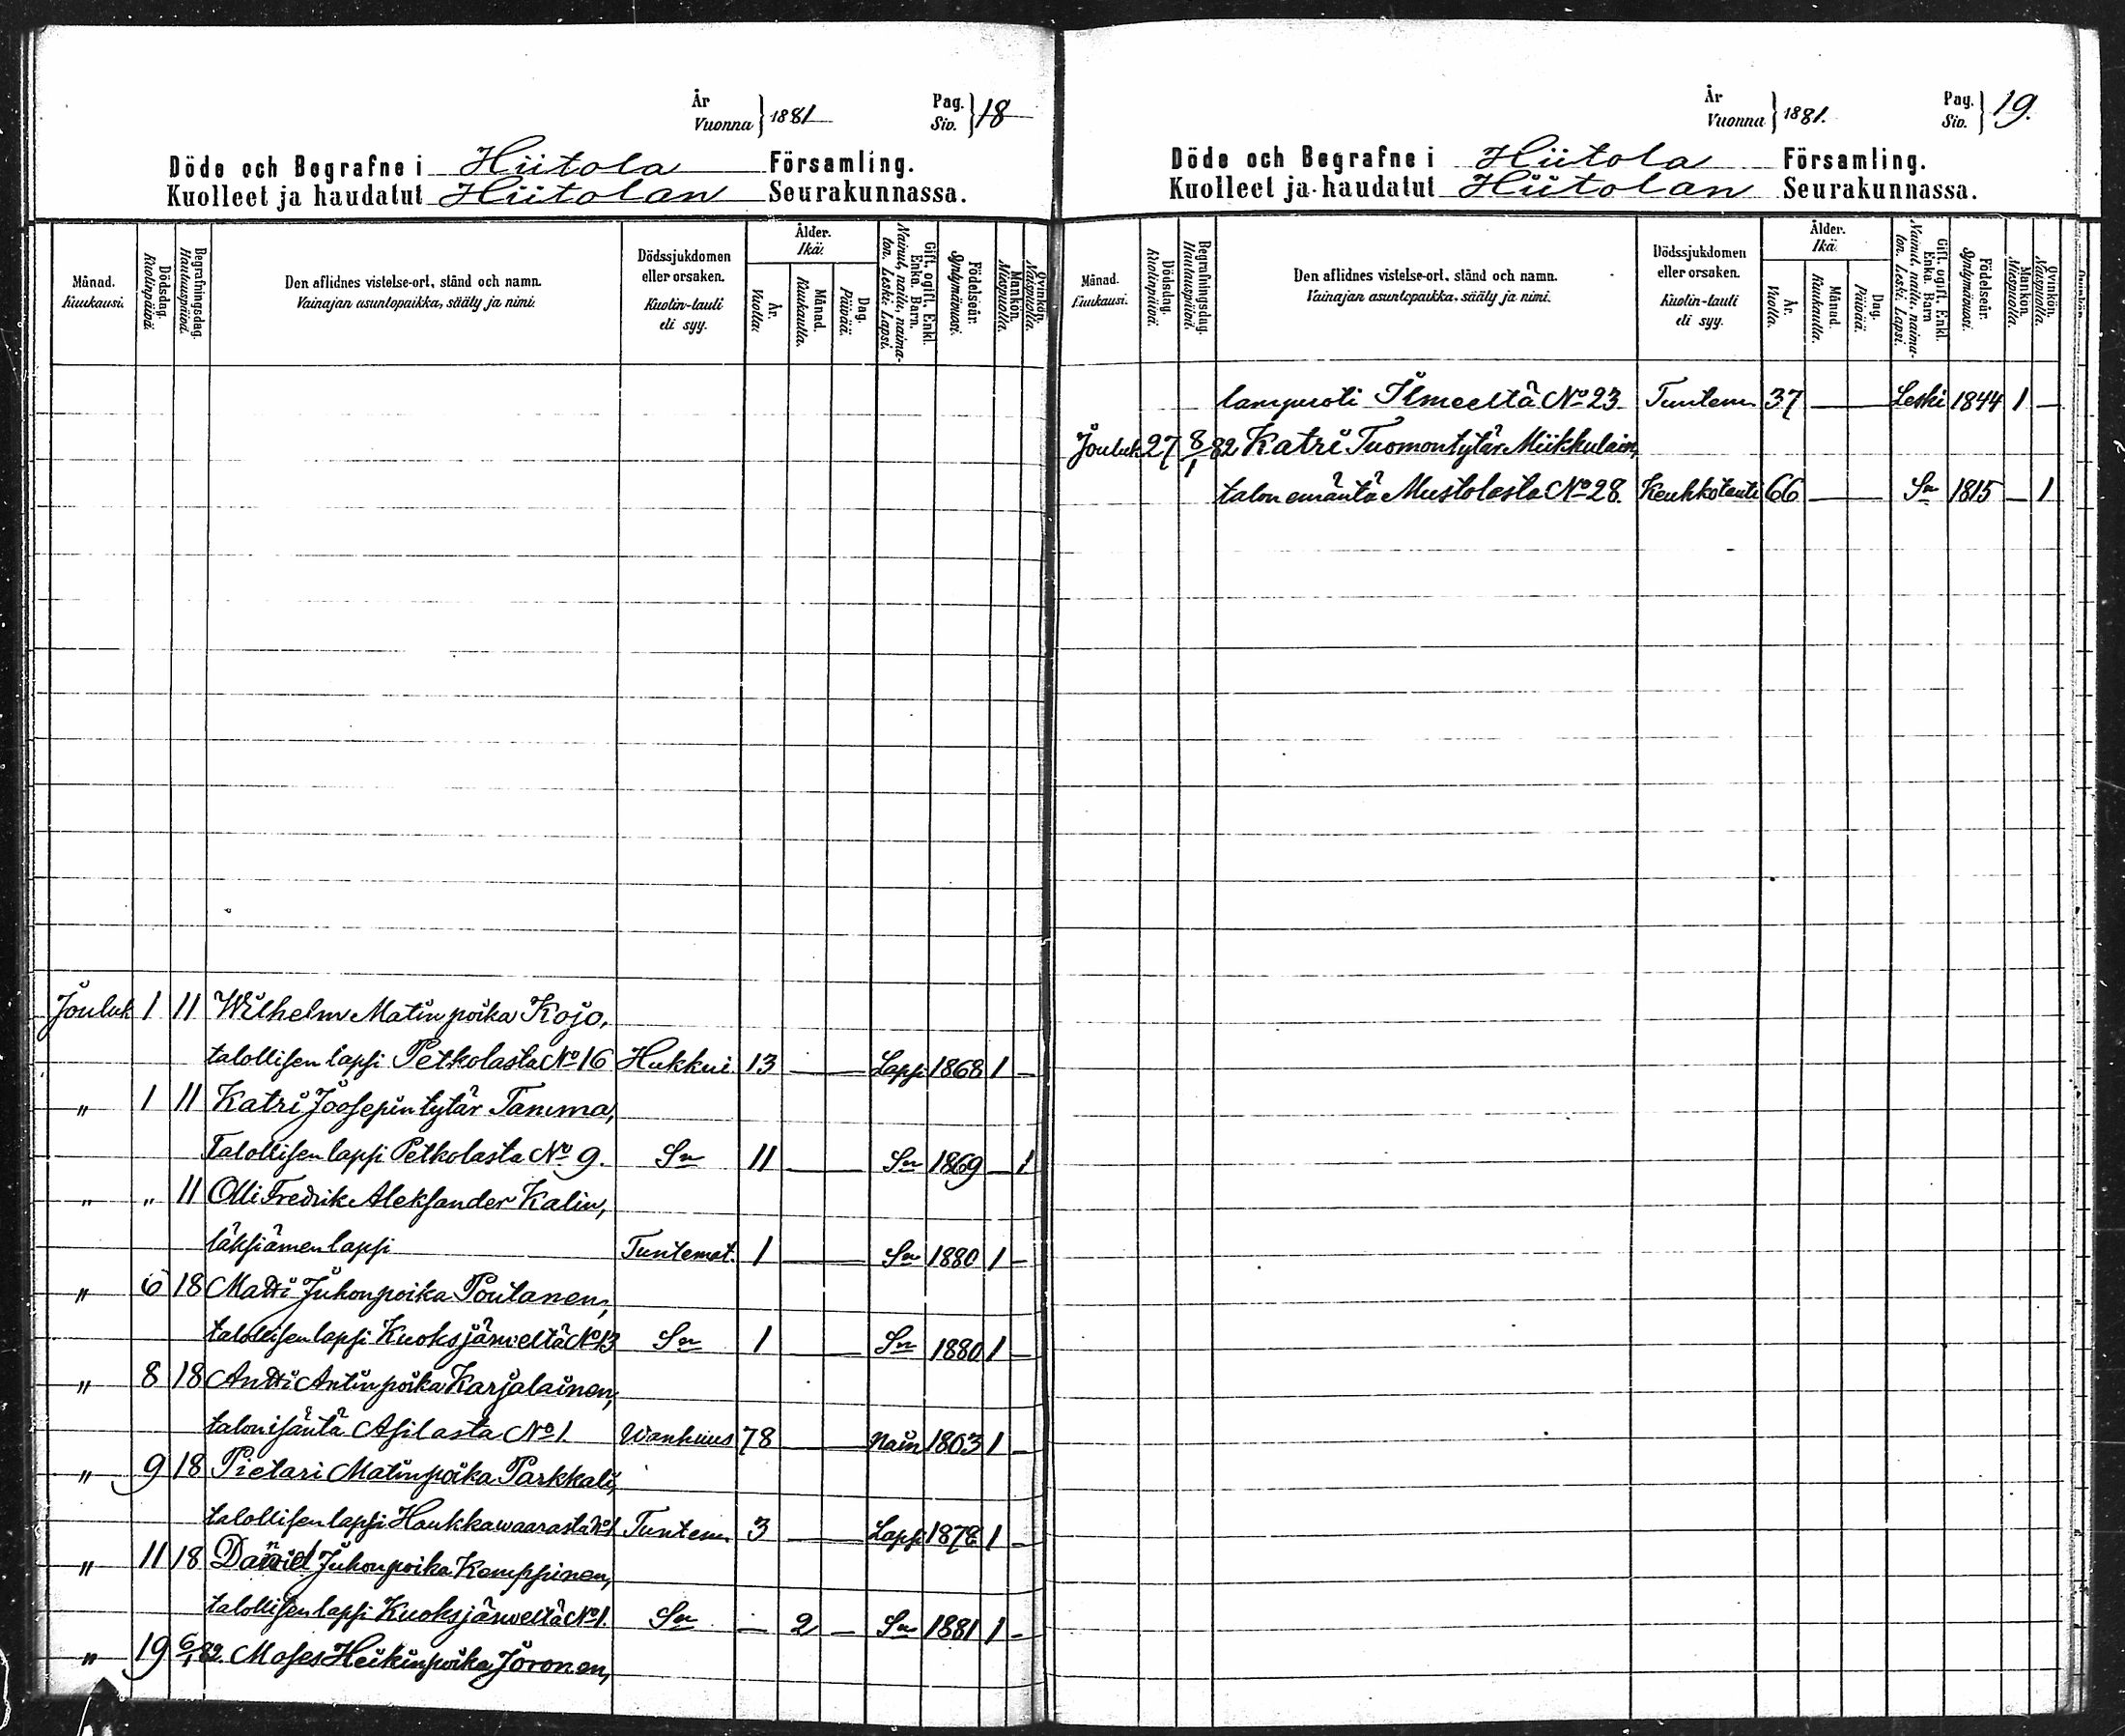 År
Vuonna } 1881
Pag.
Siv. } 18
Döde och Begrafne i Hiitola Församling.
Kuolleet ja haudatut Hiitolan Seurakunnassa.
Månad. Kuukausi.
Dödsdag. Kuolinpäivä.
Begrafningsdag. Hautauspäivä.
Den aflidnes vistelse-ort, stånd och namn.
Vainajan asuntopaikka, sääty ja nimi.
Dödssjukdomen eller orsaken.
Kuolin-tauti eli syy.
Ålder. Ikä.
År. Vuotta.
Månad. Kuukautta.
Dag. Päivää.
Gift, ogift, Enkl. Enka. Barn.
Nainut, naitu, naimaton. Leski. Lapsi.
Födelseår. Syntymävuosi.
Mankön. Miespuolia.
Qvinkön. Naispuolia.
Jouluk 1 11 Wilhelm Matinpoika Kojo,
talollisen lapsi Petkolasta No 16 Hukkui 13 — Lapsi 1868 1 —
„ 1 11 Katri Joosepintytär Tamma,
Talollisen lapsi Petkolasta No 9. Sn 11 — Sn 1869 — 1
„ „ 11 Olli Fredrik Aleksander Kalin,
läksiämen lapsi Tuntemat. 1 — Sn 1880 1 —
„ 6 18 Matti Juhonpoika Poutanen,
talollisen lapsi Kuoksjärweltä No 13 Sn 1 — Sn 1880 1 —
„ 8 18 Antti Antinpoika Karjalainen,
talonisäntä Asilasta No 1. Wanhuus 78 — Nain 1803 1 —
„ 9 18 Pietari Matinpoika Parkkali,
talollisen lapsi Haukkawaarasta No 1 Tuntem 3 — Lapsi 1878 1 —
„ 11 18 Daniel Juhonpoika Kemppinen,
talollisen lapsi Kuoksjärweltä No 1. Sn — 2 — Sn 1881 1 —
„ 19 6/1 82. Moses Heikinpoika Joronen,
År
Vuonna } 1881.
Pag.
Siv. } 19.
Döde och Begrafne i Hiitola Församling.
Kuolleet ja haudatut Hiitolan Seurakunnassa.
Månad. Kuukausi.
Dödsdag. Kuolinpäivä.
Begrafningsdag. Hautauspäivä.
Den aflidnes vistelse-ort, stånd och namn.
Vainajan asuntopaikka, sääty ja nimi.
Dödssjukdomen eller orsaken.
Kuolin-tauti eli syy.
Ålder. Ikä.
År. Vuotta.
Månad. Kuukautta.
Dag. Päivää.
Gift, ogift, Enkl. Enka. Barn
Nainut, naitu, naimaton. Leski. Lapsi.
Födelseår. Syntymävuosi.
Mankön. Miespuolia.
Qvinkön. Naispuolia.
lampuoti Ilmeeltä No 23 Tuntem 37 — Leski 1844 1 —
Jouluk 27 8/1 82 Katri Tuomontytär Miikkulain,
talon emäntä Mustolasta No 28. Keuhkotauti 66 — Sn 1815 — 1